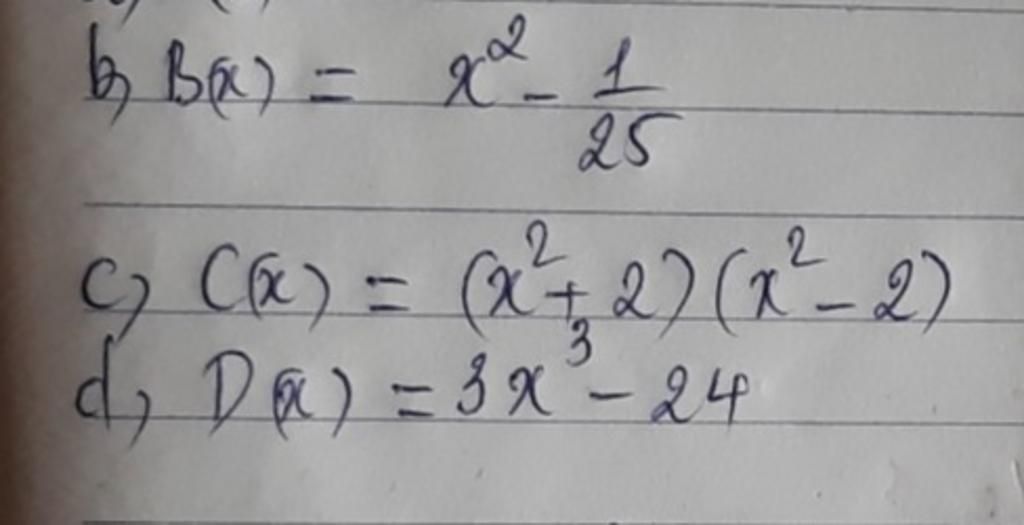 b, B(x) = x² - 1/25
c, C(x) = (x² + 2)(x² - 2)
d, D(x) = 3x³ - 24